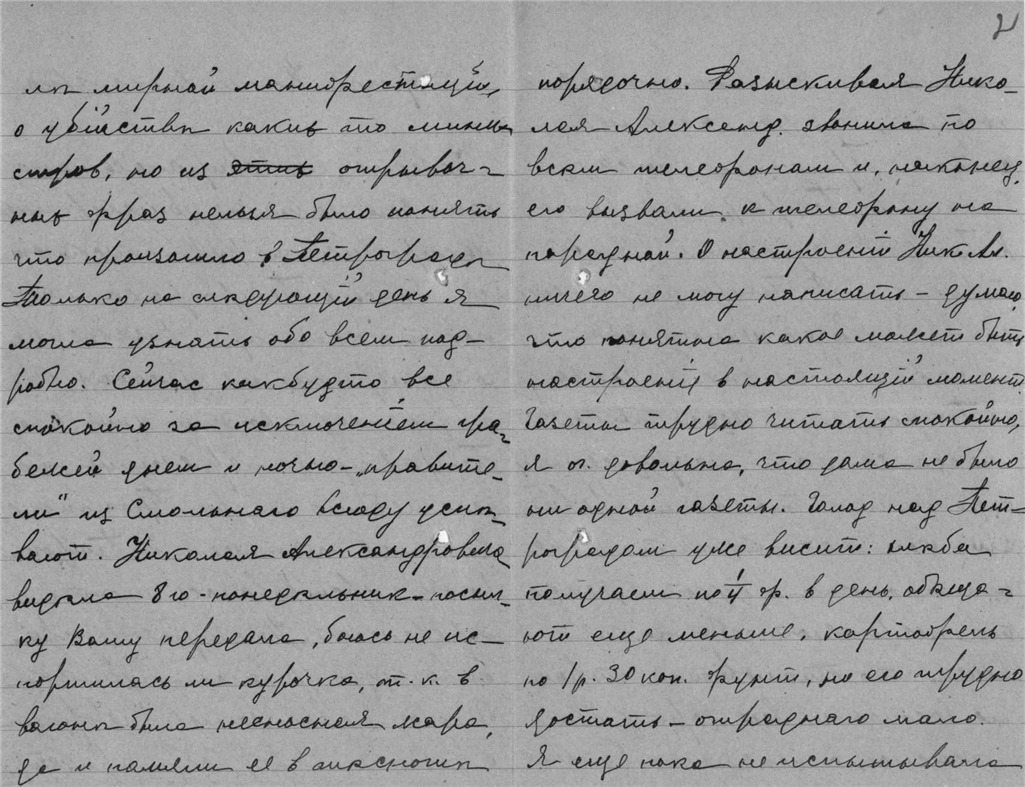 2
ли мирной манифестаціи,
о убійстве каких то мини-
стров, но из этих отрывоч-
ных фраз нельзя было понять
что произошло в Петрограде
Только на следующій день я
могла узнать обо всем под-
робно. Сейчас какбудто все
спокойно за исключеніем гра-
бежей днем и ночью - „правите-
ли" из Смольнаго всюду успе-
вают. Николая Александровича
видела 8го - понедельник - посыл-
ку Вашу передала, боюсь не ис-
портилась ли курочка, т. к. в
вагоне была несносная жара,
да и помяли ее в
порядочно. Разыскивая Нико-
лая Александ. звонила по
всем телефонам и, наконец,
его вызвали к телефону на
парадной. О настроеніи Ник Ал.
ничего не могу написать - думаю,
что понятно какое может быть
настроеніе в настоящій момент.
Газеты трудно читать спокойно,
я оч. довольна, что дома не было
ни одной газеты. Голод над Пет-
роградом уже висит: хлеба
получаем по ¼ ф. в день, обеща-
ют еще меньше, картофель
по 1 р. 30 коп. фунт, но его трудно
достать - отраднаго мало.
Я еще пока не испытывала